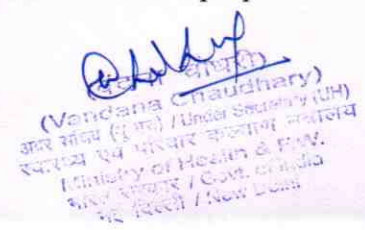 (वंदना चौधरी)
(Vandana Chaudhary)
अवर सचिव (यू.एच) / Under Secretary (UH)
स्वास्थ्य एवं परिवार कल्याण मंत्रालय
Ministry of Health & F.W.
भारत सरकार / Govt. of India
नई दिल्ली / New Delhi